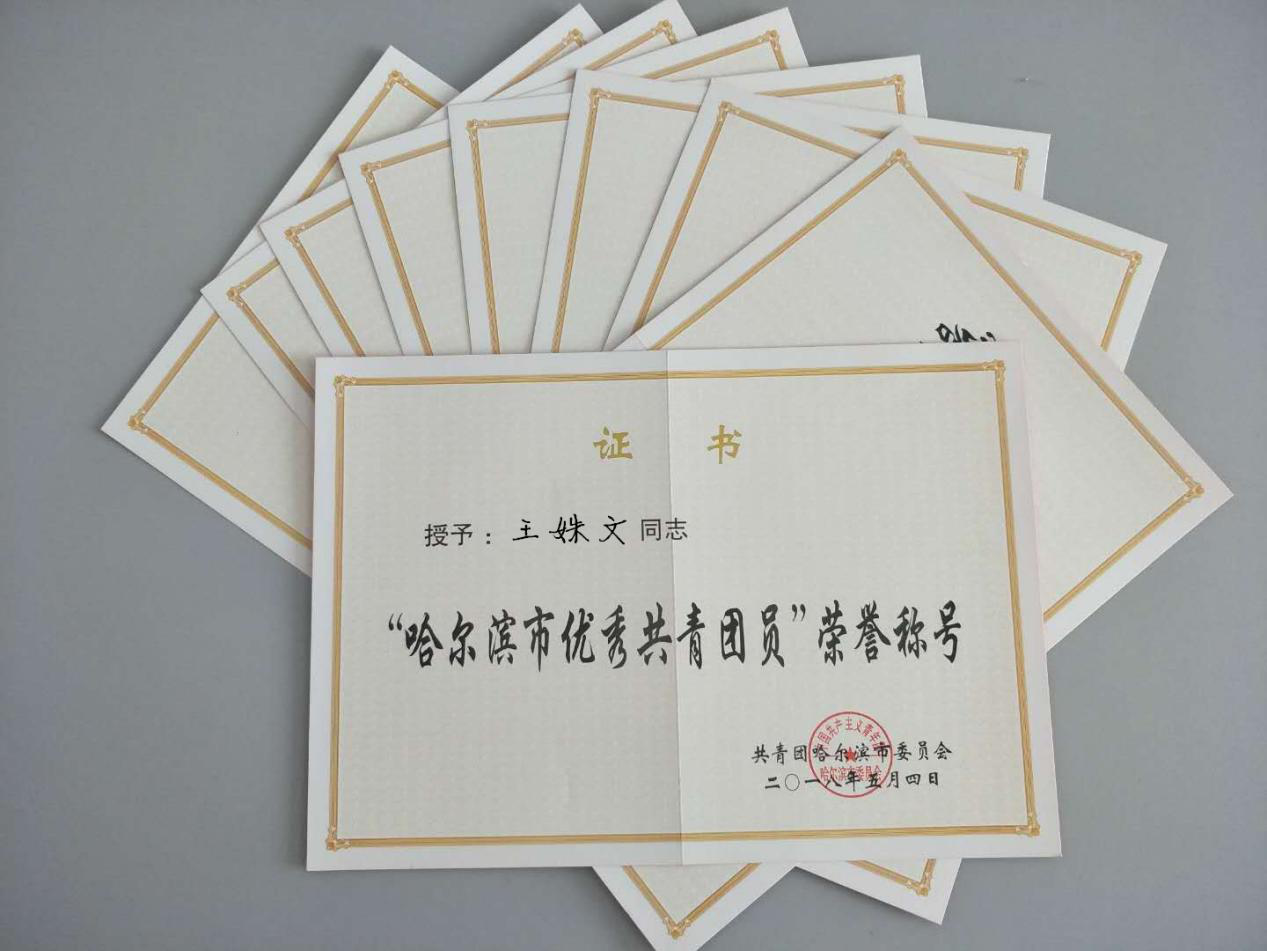 证 书
授予：王姝文同志
“哈尔滨市优秀共青团员”荣誉称号
共青团哈尔滨市委员会
二〇一八年五月四日
哈尔滨市委员会